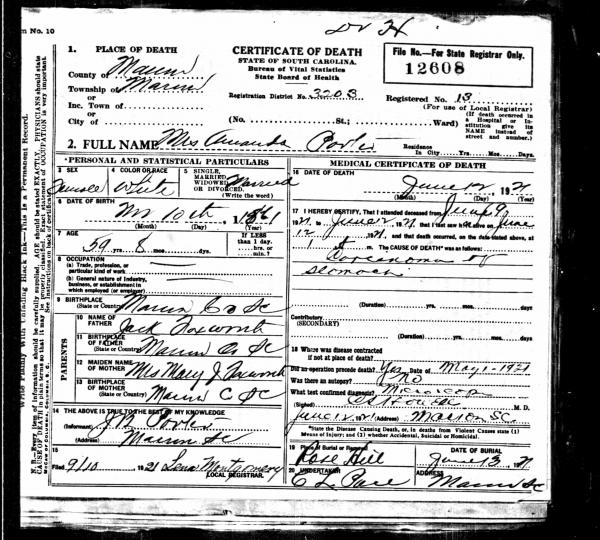 m No. 10
1. PLACE OF DEATH
County of Marion
Township of Marion
or
Inc. Town of
or
City of
CERTIFICATE OF DEATH
STATE OF SOUTH CAROLINA.
Bureau of Vital Statistics
State Board of Health
Registration District No. 3203
(No. St.; Ward)
File No.—For State Registrar Only.
12608
Registered No. 13
(For use of Local Registrar)
(If death occurred in a Hospital or Institution give its NAME instead of street and number.)
2. FULL NAME Mrs Amanda Porter
Residence In City Yrs. Mos. Days.
PERSONAL AND STATISTICAL PARTICULARS
3 SEX
Female
4 COLOR OR RACE
White
5 SINGLE, MARRIED, WIDOWED, OR DIVORCED.
(Write the word)
Married
6 DATE OF BIRTH
10th, 1861
(Month) (Day) (Year)
7 AGE
59 yrs. 8 mos. dys.
IF LESS than 1 day, hrs. or min.?
8 OCCUPATION
(a) Trade, profession, or particular kind of work
(b) General nature of industry, business, or establishment in which employed (or employer)
9 BIRTHPLACE
(State or Country) Marion Co SC
PARENTS
10 NAME OF FATHER
Jack Foxworth
11 BIRTHPLACE OF FATHER
(State or Country) Marion Co SC
12 MAIDEN NAME OF MOTHER
Mrs Mary J Foxworth
13 BIRTHPLACE OF MOTHER
(State or Country) Marion C SC
14 THE ABOVE IS TRUE TO THE BEST OF MY KNOWLEDGE
(Informant)
(Address) Marion SC
15
Filed 9/10 1921 Lena Montgomery
LOCAL REGISTRAR.
MEDICAL CERTIFICATE OF DEATH
16 DATE OF DEATH
June 12, 1921
(Month) (Day) (Year)
17 I HEREBY CERTIFY, That I attended deceased from June 9,
1921, to June 12 1921, that I last saw her alive on June
12 1921, and that death occurred, on the date stated above, at
m. The CAUSE OF DEATH* was as follows:
Carcinoma of
stomach
(Duration) yrs. mos. days
Contributory
(SECONDARY)
(Duration) yrs. mos. days
18 Where was disease contracted
if not at place of death?
Did an operation precede death? Yes Date of May 1-1921
Was there an autopsy? No
What test confirmed diagnosis?
M. D.
June 12 1921 (Address) Marion SC
*State the Disease Causing Death, or, in deaths from Violent Causes state (1) Means of Injury; and (2) whether Accidental, Suicidal or Homicidal.
19 Place of Burial or Removal
Rose Hill
DATE OF BURIAL
June 13, 1921
20 UNDERTAKER
C L Pace
ADDRESS
Marion SC